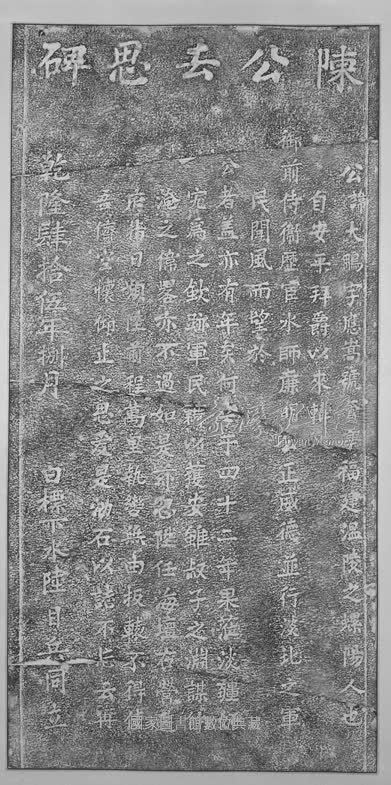 陳公去思碑
公諱大鵬字應嵩號年福建溫陵之螺陽人也
自安平拜爵以來轉
御前侍衛歷官水師廉明公正威德並行淡北之軍
民聞風而望於
公者蓋亦有年矣何于四十二年果蒞淡疆
宄為之斂跡軍民賴以獲安雖叔子之淵謀
淹之儒畧亦不過如是忽陞任海壇右營
府日往前程萬里執轡無由扳轅不得
吾儕空懷仰止之思爰是勒石以誌不忘云爾
乾隆肆拾伍年捌月 日標下水陸目兵同立
Taiwan Memory
國家圖書館數位典藏